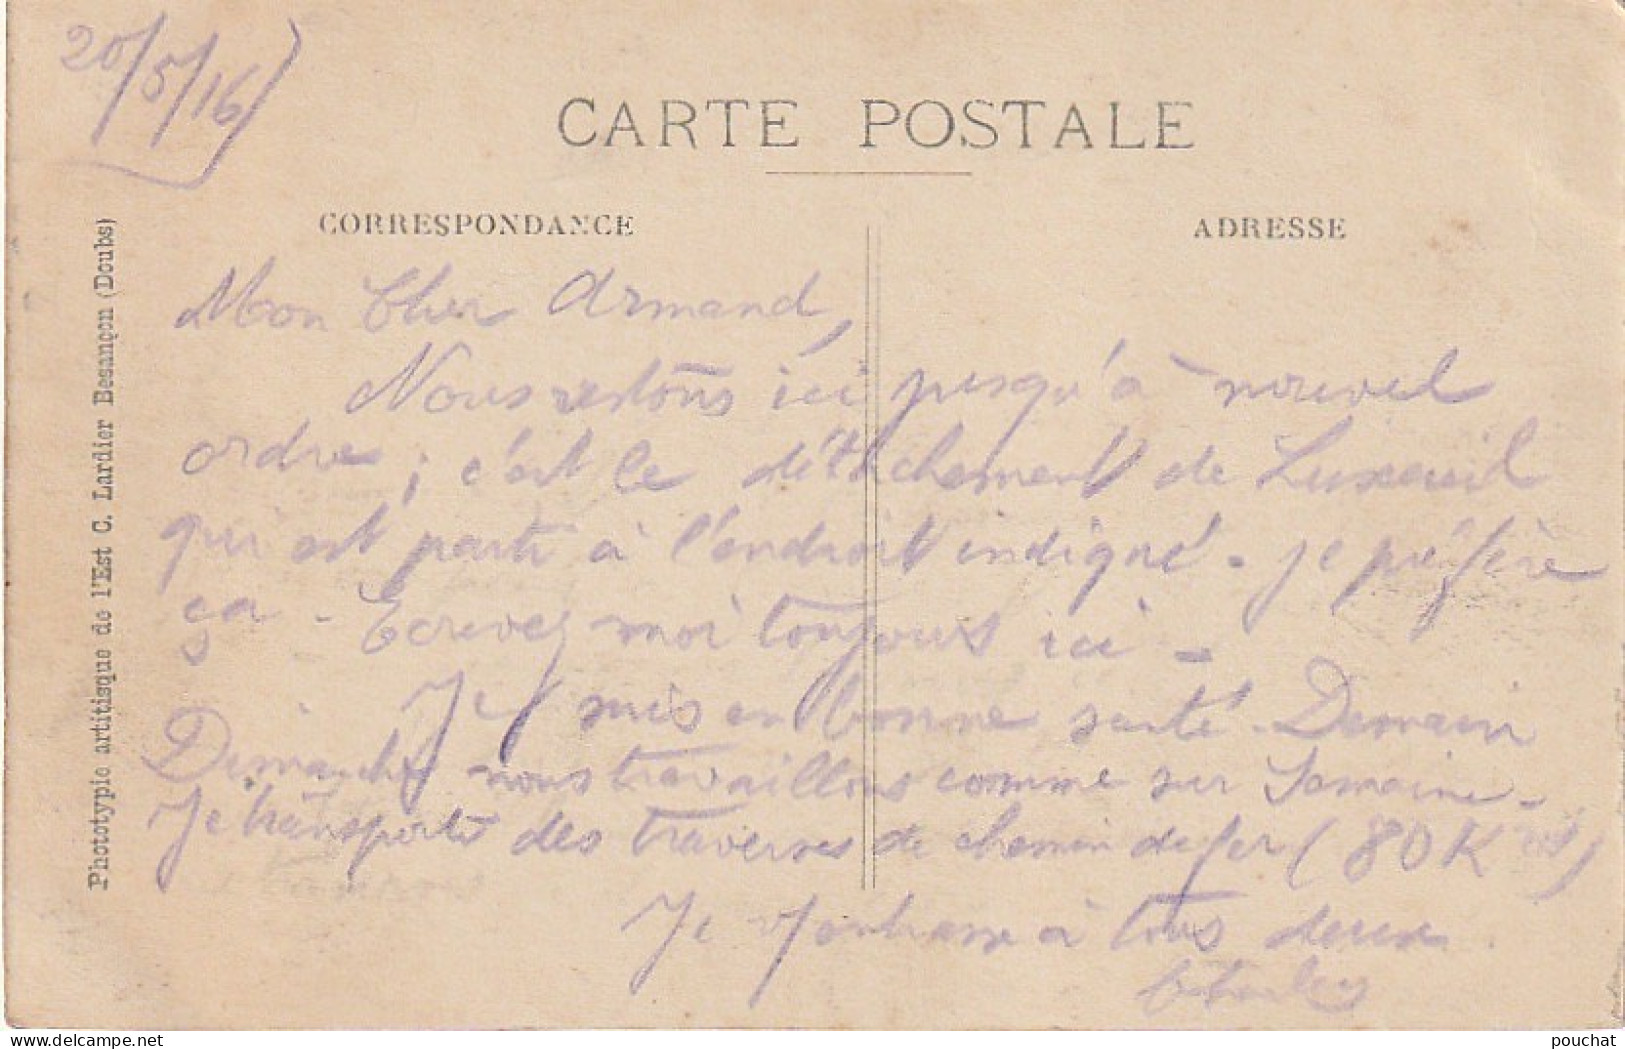 20/5/16
CARTE POSTALE
CORRESPONDANCE
ADRESSE
Mon Cher Armand,
Nous restons ici jusqu'à nouvel
ordre ; c'est le détachement de Luxeuil
qui est parti à l'endroit indiqué - je préfère
ça - Ecrivez moi toujours ici -
Je suis en bonne santé - Demain
Dimanche nous travaillons comme sur Semaine -
Je transporte des traverses de chemin de fer (80 K os)
Je embrasse à tous deux
Charles
Phototypie artitisque de l'Est C. Lardier Besançon (Doubs)
www.delcampe.net
pouchat